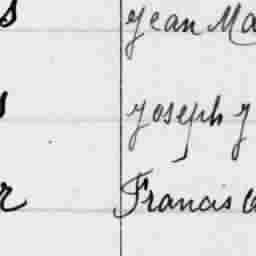 s Jean Ma
s Joseph J
r Francis